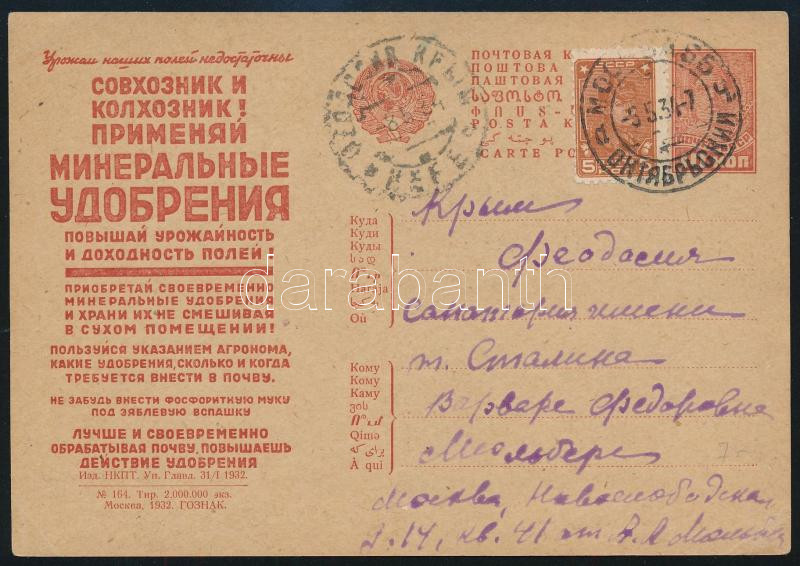 Урожаи наших полей недостаточны
СОВХОЗНИК И
КОЛХОЗНИК!
ПРИМЕНЯЙ
МИНЕРАЛЬНЫЕ
УДОБРЕНИЯ
ПОВЫШАЙ УРОЖАЙНОСТЬ
И ДОХОДНОСТЬ ПОЛЕЙ!
ПРИОБРЕТАЙ СВОЕВРЕМЕННО
МИНЕРАЛЬНЫЕ УДОБРЕНИЯ
И ХРАНИ ИХ НЕ СМЕШИВАЯ
В СУХОМ ПОМЕЩЕНИИ!
ПОЛЬЗУЙСЯ УКАЗАНИЕМ АГРОНОМА,
КАКИЕ УДОБРЕНИЯ, СКОЛЬКО И КОГДА
ТРЕБУЕТСЯ ВНЕСТИ В ПОЧВУ.
НЕ ЗАБУДЬ ВНЕСТИ ФОСФОРИТНУЮ МУКУ
ПОД ЗЯБЛЕВУЮ ВСПАШКУ
ЛУЧШЕ И СВОЕВРЕМЕННО
ОБРАБАТЫВАЯ ПОЧВУ, ПОВЫШАЕШЬ
ДЕЙСТВИЕ УДОБРЕНИЯ
Изд. НКПТ. Уп. Главл. 31/I 1932.
№ 164. Тир. 2.000.000 экз.
Москва, 1932. ГОЗНАК.
ПОЧТОВАЯ К
ПОШТОВА
ПАШТОВАЯ
POSTA K
CARTE PO
СССР
5
ОКТЯБРЬСК
Куда
Куди
Куды
სად
Haraja
Où
Кому
Кому
Каму
ვის
Qimə
À qui
Крым
Феодосия
санатория имени
т. Сталина
Варваре Федоровне
Мольбере
Москва, Новослободская
д. 14, кв. 41 от
7-
darabanth